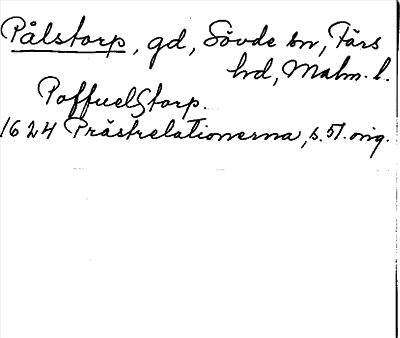 Pålstorp, gd, Sövde sn, Färs
hd, Malm. l.
PoffuelStorp.
1624 Prästrelationerna, s. 51. orig.